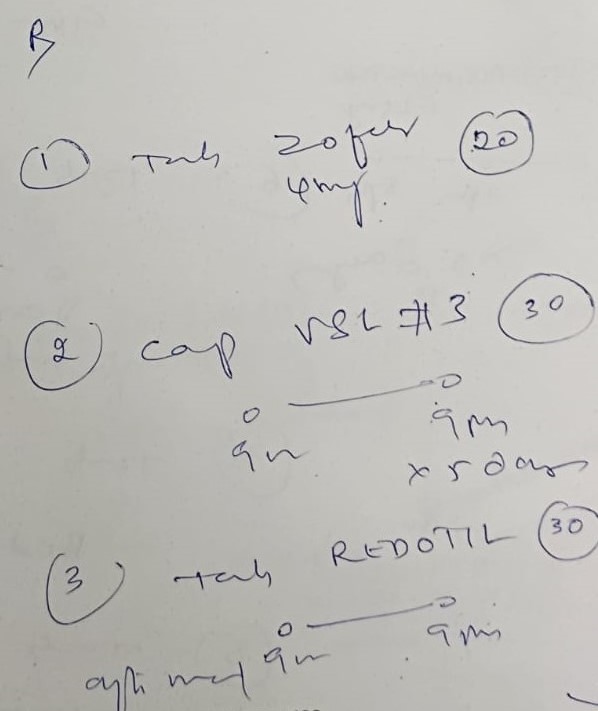 R
① Tab Zofer ⑳
4mg.
② Cap VSL #3 ㉚
0 — 0
9am 9pm
x 5 days
③ Tab REDOTIL ㉚
0 — 0
9am 9pm